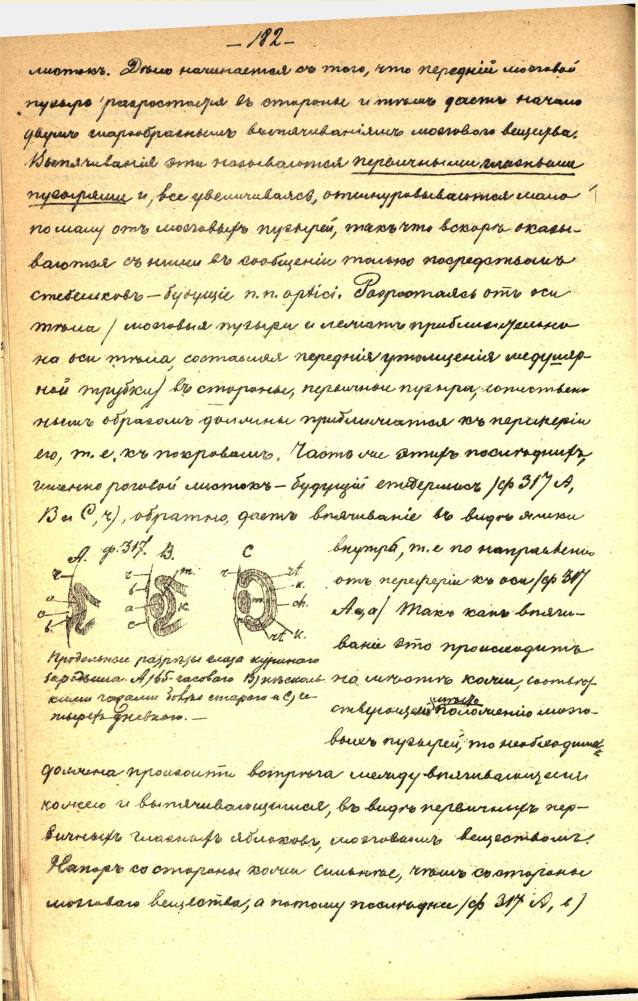 — 182 —
листокъ. Дѣло начинается съ того, что передній мозговой
пузырь разростается въ стороны и тѣмъ даетъ начало
двумъ шарообразнымъ выпячиваніямъ мозгового вещества.
Выпячиванія эти называются первичными глазными
пузырями и, все увеличиваясь, отшнуровываются мало
по малу отъ мозговыхъ пузырей, такъ что вскорѣ оказы-
ваются съ ними въ сообщеніи только посредствомъ
стебельковъ — будущіе n.n. optici. Разростаясь отъ оси
тѣла / мозговыя пузыри и лежатъ приблизительно
на оси тѣла, составляя переднія утолщенія медулляр-
ной трубки / въ стороны, первичные пузыри,
образомъ должны приближаться къ периферіи
его, т.е. къ покровамъ. Часть же этихъ послѣднихъ,
именно роговой листокъ — будущій епидермисъ /ф 317 A,
B и C, ч/, обратно, даетъ впячиваніе въ видѣ ямки
внутрь, т.е по направленію
отъ периферіи къ оси /ф 317
A a, a/ Такъ какъ впячи-
ваніе это происходитъ
на мѣстѣ кожи, соотвѣт-
ствующемъ положенію мозго-
выхъ пузырей, то необходимо
ф. 317.
A. B. C
ч а с в
ч в а с т. к.
ч т. rt к. ch. rt к.
Продольные разрѣзы глаза куринаго
зародыша. A/ 65 часоваго B/ нѣсколь-
кими часами болѣе стараго и C/ че-
тырехъ дневнаго. —
должна произойти встрѣча между впячивающеюся
кожею и выпячивающимся, въ видѣ первичныхъ пер-
вичныхъ глазныхъ яблоковъ, мозговымъ веществомъ.
Напоръ со стороны кожи сильнѣе, чѣмъ со стороны
мозговаго вещества, а потому послѣднее /ф 317 A, в/